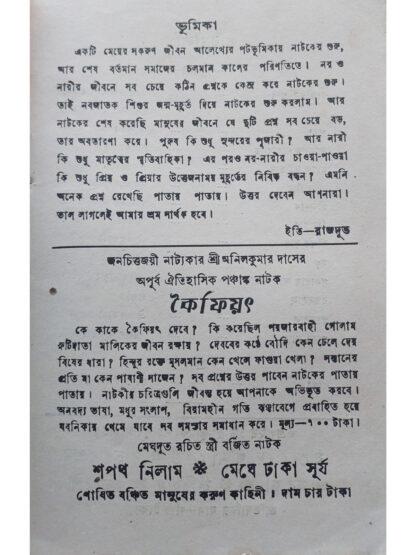 ভূমিকা
একটি মেয়ের সকরুণ জীবন আলেখ্যের পটভূমিকায় নাটকের শুরু,
আর শেষ বর্তমান সমাজের চলমান কালের পরিণতিতে। নর ও
নারীর জীবনে সব চেয়ে কঠিন প্রশ্নকে কেন্দ্র করে নাটকের শুরু।
তাই নবজাতক শিশুর জন্ম-মুহূর্ত দিয়ে নাটকের শুরু করলাম। আর
নাটকের শেষ করেছি মানুষের জীবনে যে দুটি প্রশ্ন সব চেয়ে বড়,
তার অবতারণা করে। পুরুষ কি শুধু সুন্দরের পূজারী? আর নারী
কি শুধু মাতৃত্বের স্মৃতিবাহিকা? এর পরও নর-নারীর চাওয়া-পাওয়া
কি শুধু প্রিয় ও প্রিয়ার উত্তেজনাময় মুহূর্তের নিবিড় বন্ধন? এমনি
অনেক প্রশ্ন রেখেছি পাতায় পাতায়। উত্তর দেবেন আপনারা।
ভাল লাগলেই আমার শ্রম সার্থক হবে।
ইতি—রাজদূত
জনচিত্তজয়ী নাট্যকার শ্রীঅনিলকুমার দাসের
অপূর্ব ঐতিহাসিক পঞ্চাঙ্ক নাটক
কৈফিয়ৎ
কে কাকে কৈফিয়ৎ দেবে? কি করেছিল পয়জারবাহী গোলাম
রুটিদাতা মালিকের জীবন রক্ষায়? দেবরের কণ্ঠে বৌদি কেন ঢেলে দেয়
বিষের ধারা? হিন্দুর রক্তে মুসলমান কেন খেলে ফাগুয়া খেলা? সন্তানের
প্রতি মা কেন পাষাণী সাজেন? সব প্রশ্নের উত্তর পাবেন নাটকের পাতায়
পাতায়। নাটকীয় চরিত্রগুলি জীবন্ত হয়ে আপনাকে অভিভূত করবে।
অনবদ্য ভাষা, মধুর সংলাপ, বিরামহীন গতি স্বতাবেগে প্রবাহিত হয়ে
যবনিকায় থেমে যাবে সব সমস্যার সমাধান করে। মূল্য—৭০০ টাকা।
মেঘদূত রচিত স্ত্রী বর্জিত নাটক
শপথ নিলাম ❋ মেঘে ঢাকা সূর্য
শোষিত বঞ্চিত মানুষের করুণ কাহিনী। দাম চার টাকা